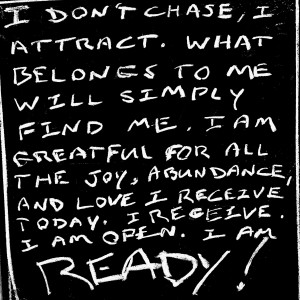 I DON'T CHASE, I
ATTRACT. WHAT
BELONGS TO ME
WILL SIMPLY
FIND ME. I AM
GREATFUL FOR ALL
THE JOY, ABUNDANCE,
AND LOVE I RECEIVE
TODAY. I RECEIVE.
I AM OPEN. I AM
READY!